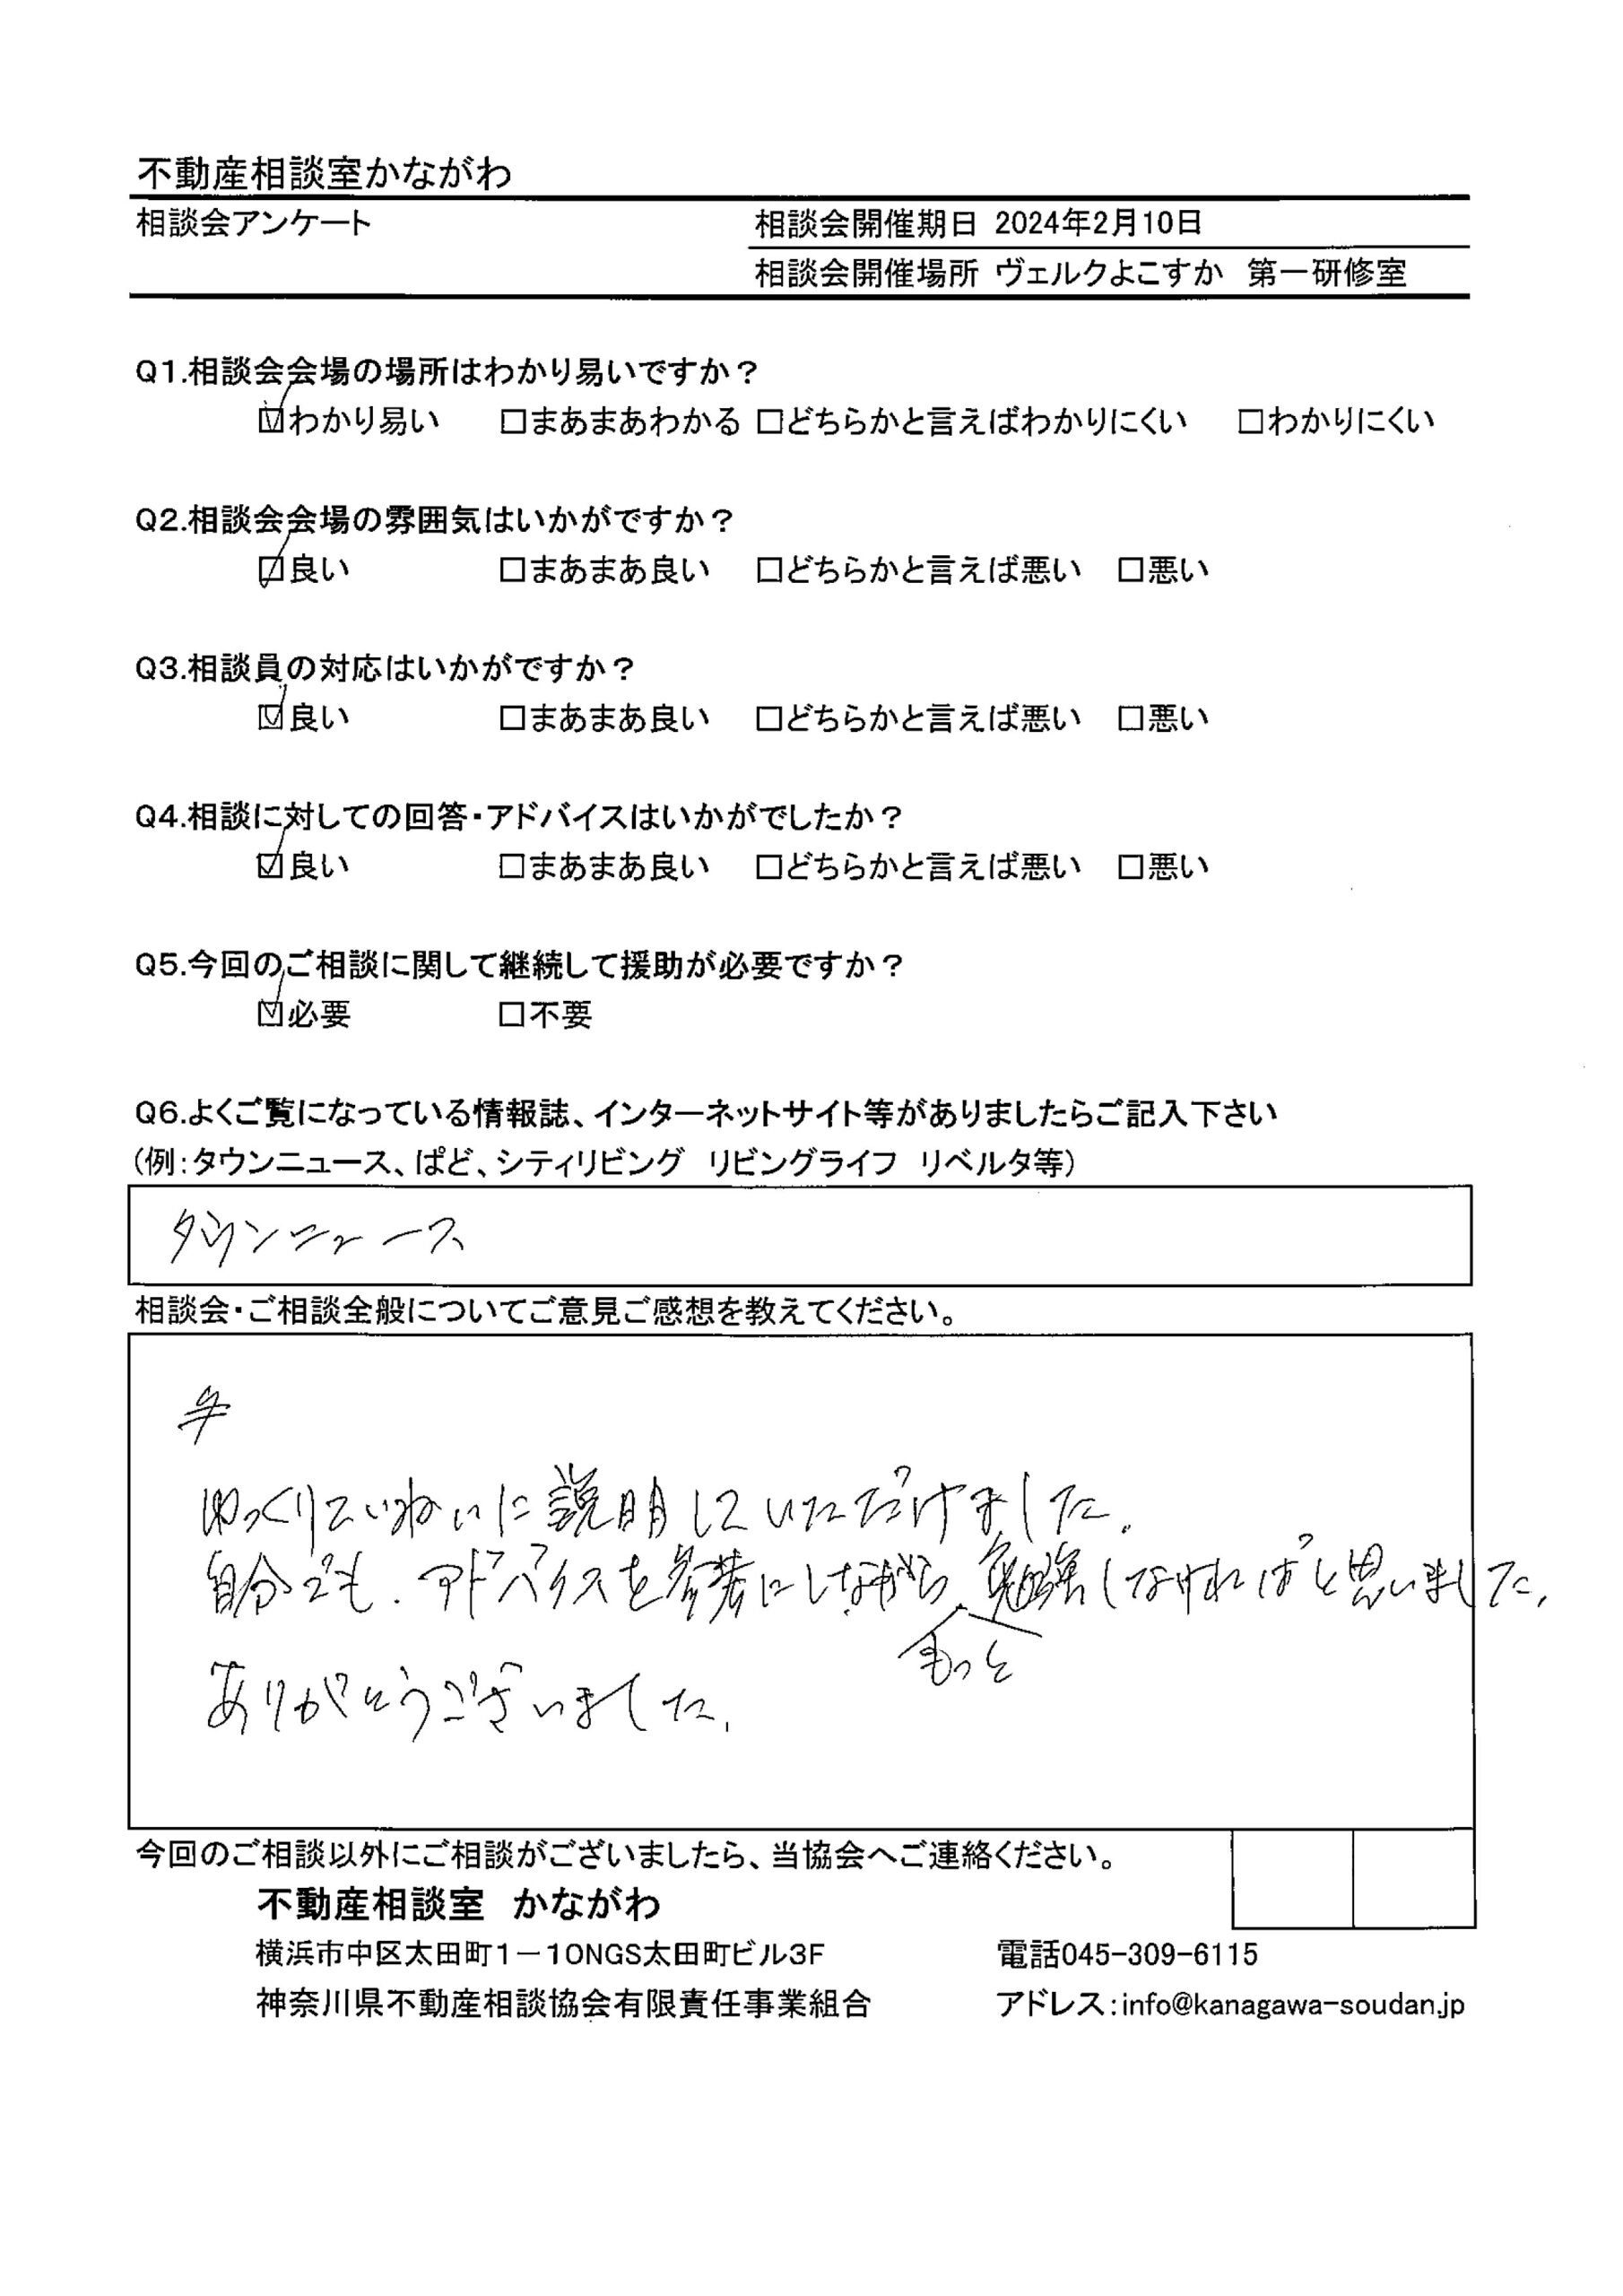 不動産相談室かながわ
相談会アンケート
相談会開催期日 2024年2月10日
相談会開催場所 ヴェルクよこすか 第一研修室
Q1.相談会会場の場所はわかり易いですか？
☑わかり易い □まあまあわかる □どちらかと言えばわかりにくい □わかりにくい
Q2.相談会会場の雰囲気はいかがですか？
☑良い □まあまあ良い □どちらかと言えば悪い □悪い
Q3.相談員の対応はいかがですか？
☑良い □まあまあ良い □どちらかと言えば悪い □悪い
Q4.相談に対しての回答・アドバイスはいかがでしたか？
☑良い □まあまあ良い □どちらかと言えば悪い □悪い
Q5.今回のご相談に関して継続して援助が必要ですか？
☑必要 □不要
Q6.よくご覧になっている情報誌、インターネットサイト等がありましたらご記入下さい
（例：タウンニュース、ぱど、シティリビング リビングライフ リベルタ等）
タウンニュース
相談会・ご相談全般についてご意見ご感想を教えてください。
ゆっくりていねいに説明していただけました。
自分でも、アドバイスを参考にしながら勉強しなければと思いました。
もっと
ありがとうございました。
今回のご相談以外にご相談がございましたら、当協会へご連絡ください。
不動産相談室 かながわ
横浜市中区太田町1－10NGS太田町ビル3F
電話045-309-6115
神奈川県不動産相談協会有限責任事業組合
アドレス：info@kanagawa-soudan.jp